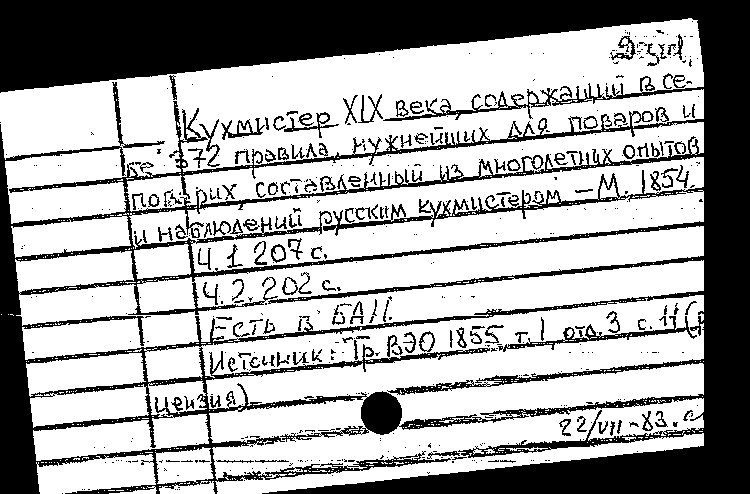 Кухмистер XIX века, содержащий в се-
бе 372 правила, нужнейших для поваров и
поварих, составленный из многолетних опытов
и наблюдений русским кухмистером – М., 1854.
Ч.1 207 с.
Ч.2. 202 с.
Есть в БАН.
Источник: Тр. ВЭО, 1855, т. 1, отд. 3, с. 11 (р
цензия)
22/VII-83.